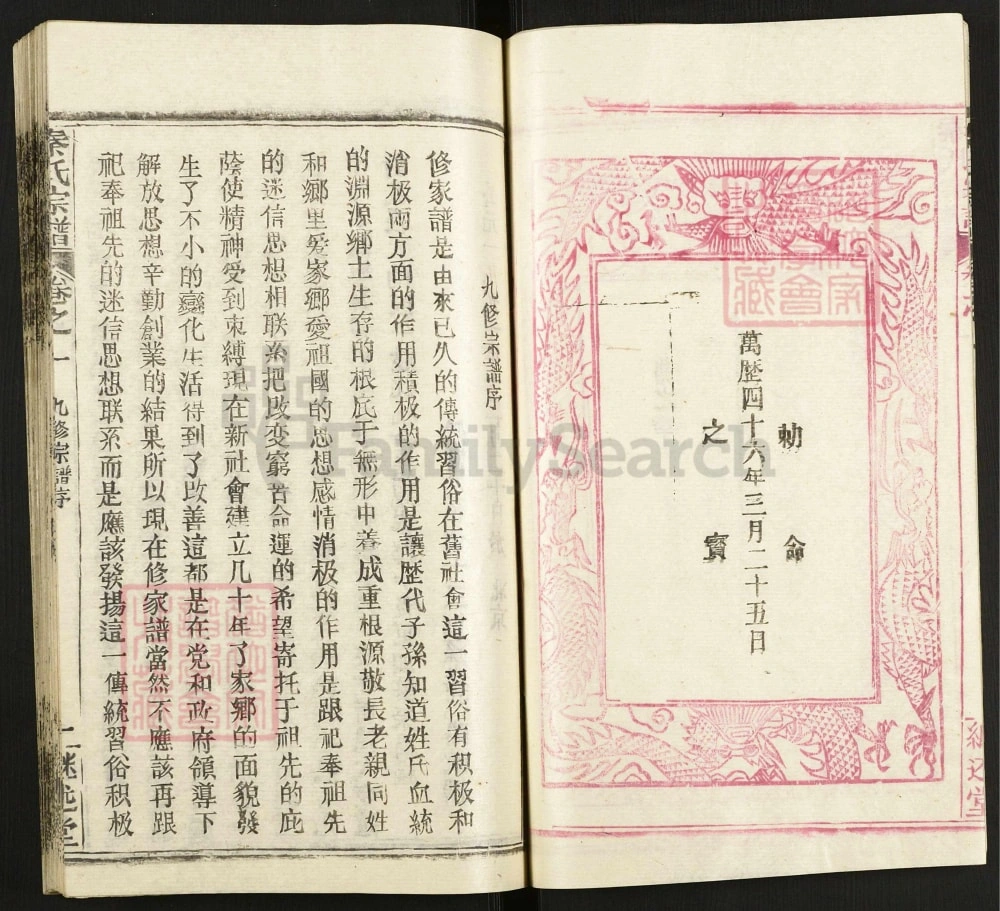 勅命
萬歷四十六年三月二十五日
之寳
九修宗譜序
修家譜是由來已久的傳統習俗在舊社會這一習俗有积极和
消极両方面的作用积极的作用是讓歷代子孫知道姓氏血統
的淵源鄉土生存的根底于無形中养成重根源敬長老親同姓
和鄉里爱家鄉愛祖國的思想感情消极的作用是跟祀奉祖先
的迷信思想相联系把改变窮苦命運的希望寄托于祖先的庇
蔭使精神受到束縛現在新社會建立几十年了家鄉的面貌發
生了不小的變化生活得到了改善這都是在党和政府領導下
解放思想辛勤創業的結果所以現在修家譜當然不應該再跟
祀奉祖先的迷信思想联系而是應該發揚這一傳統習俗积极
秦氏宗譜 卷之一 九修宗譜序 一
FamilySearch